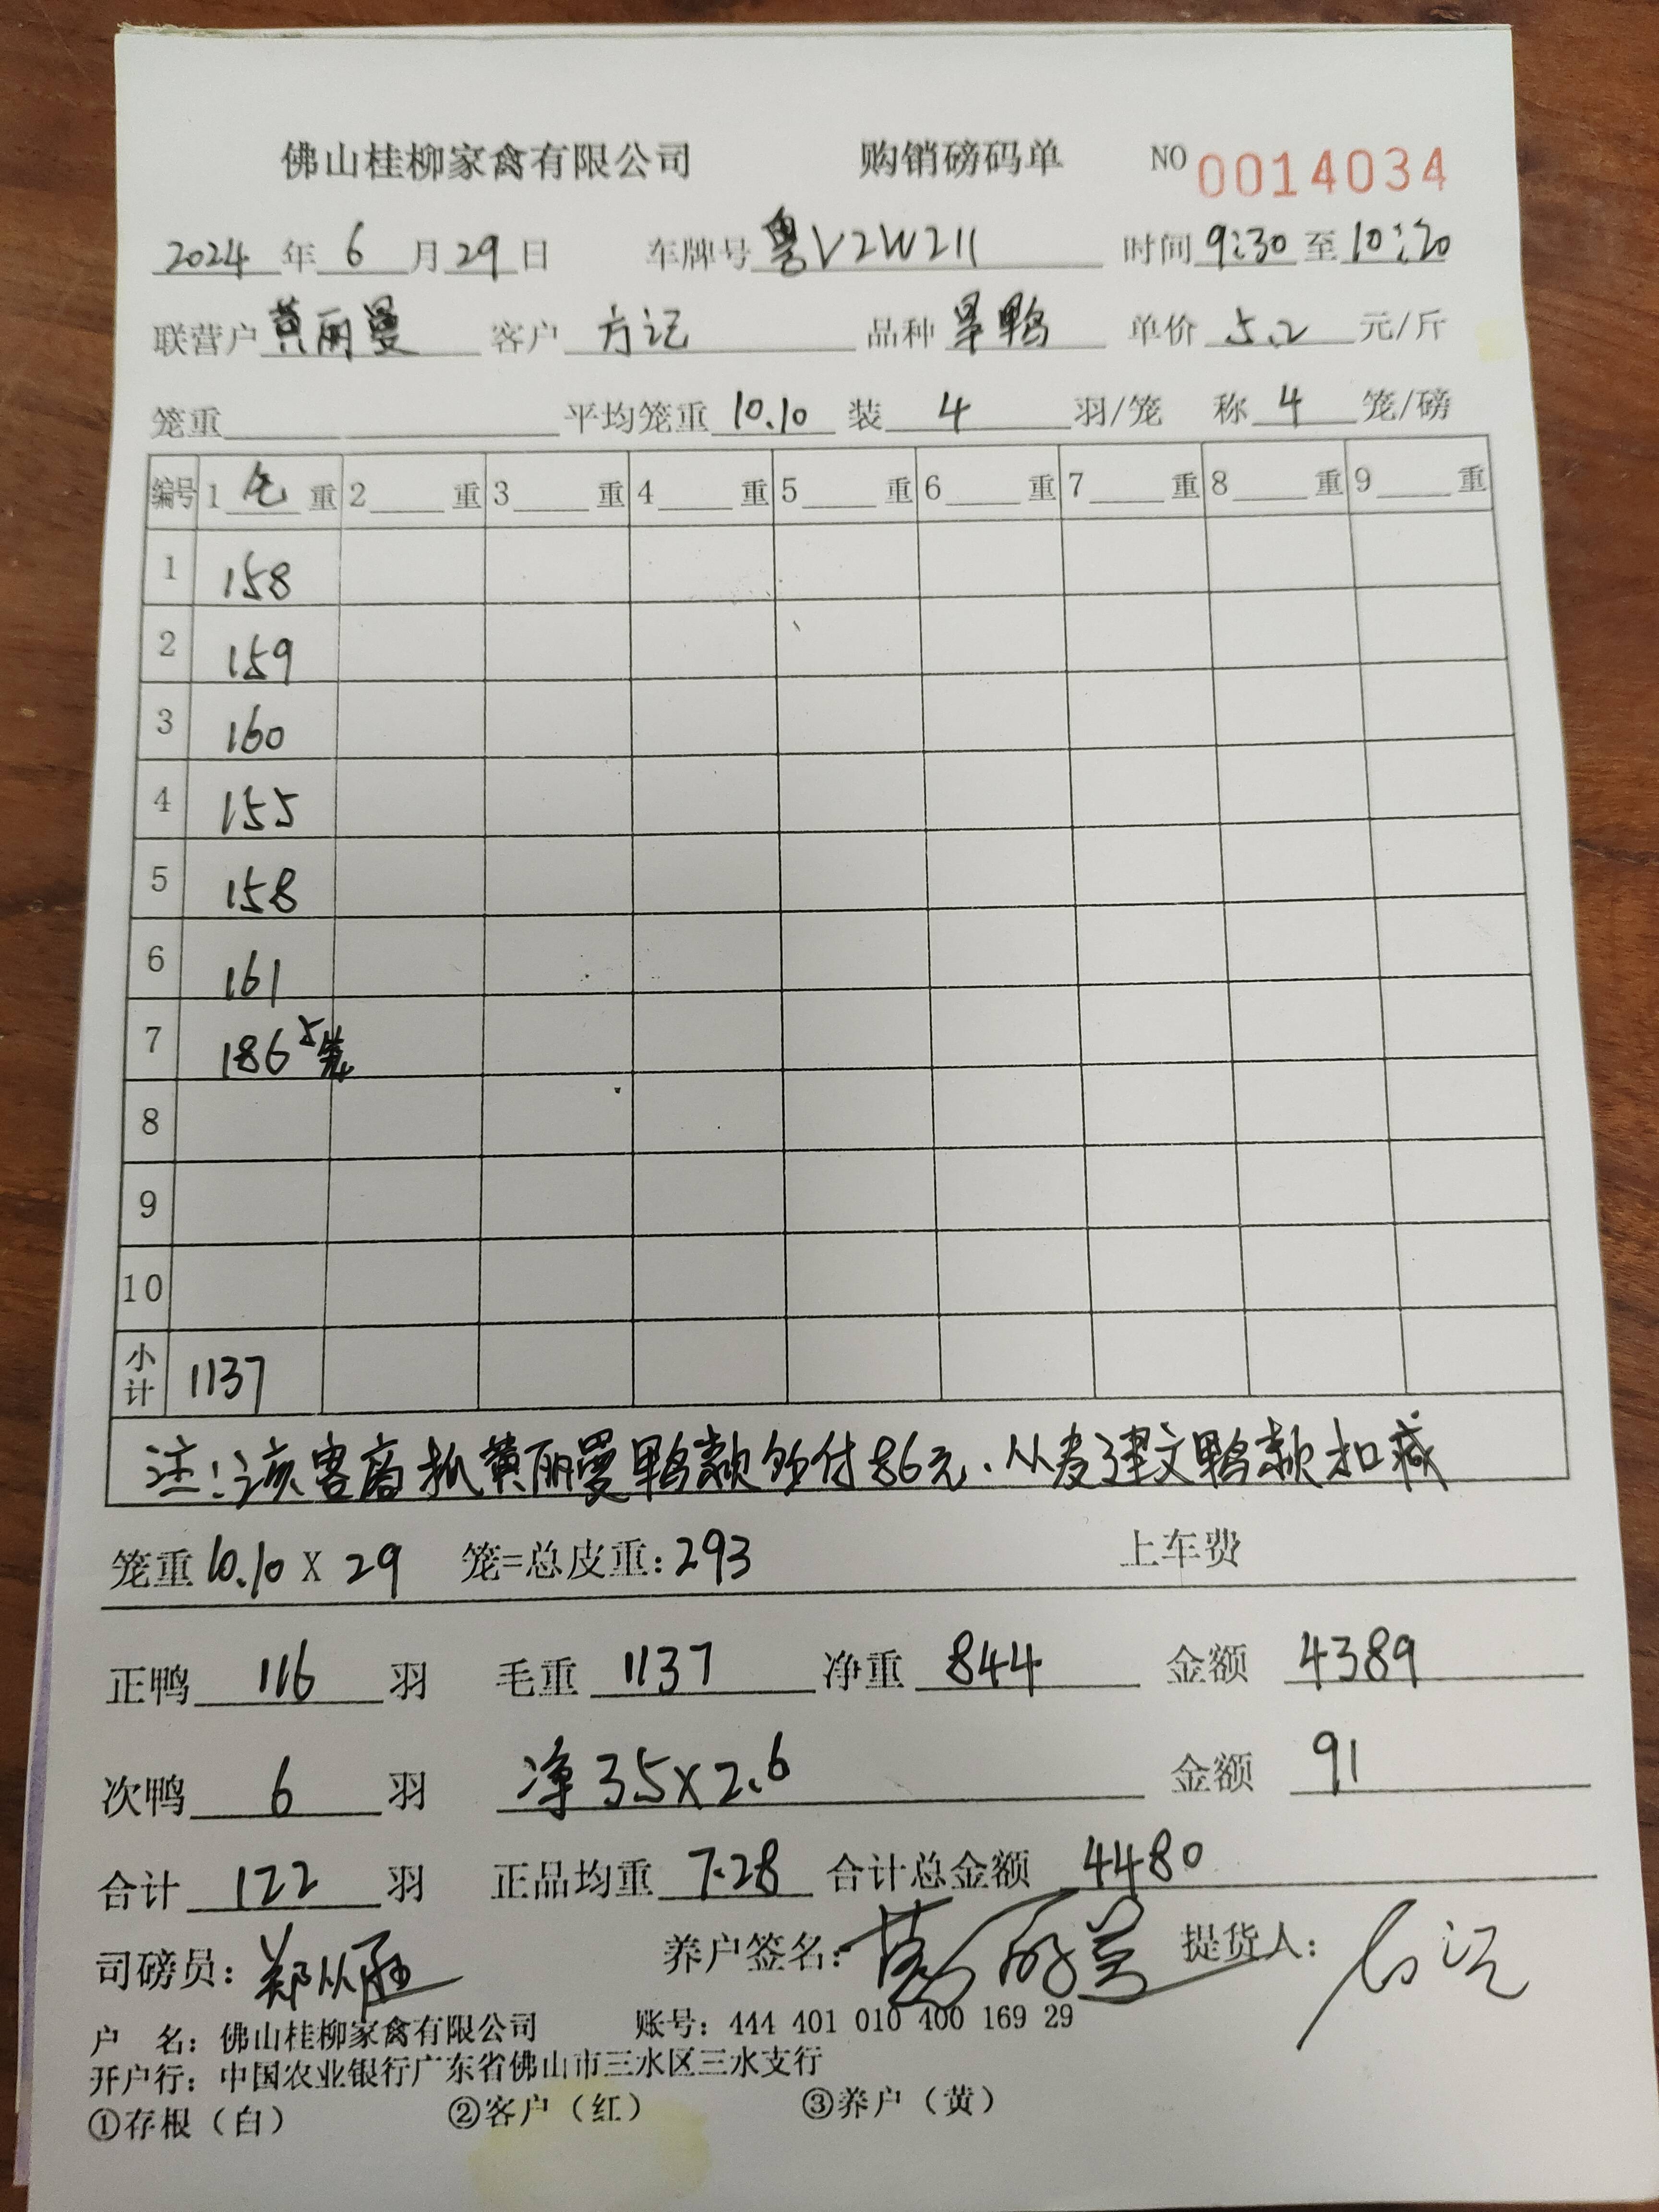 佛山桂柳家禽有限公司 购销磅码单 NO 0014034
2024 年 6 月 29 日 车牌号 粤V2W211 时间 9:30 至 10:20
联营户 黄丽曼 客户 方记 品种 旱鸭 单价 5.2 元/斤
笼重 平均笼重 10.10 装 4 羽/笼 称 4 笼/磅
编号 1 毛 重 2 重 3 重 4 重 5 重 6 重 7 重 8 重 9 重
1 158
2 159
3 160
4 155
5 158
6 161
7 186 5笼
8
9
10
小计 1137
注:该客商抓黄丽曼鸭款多付86元.从麦建文鸭款扣减
笼重 10.10 X 29 笼=总皮重: 293 上车费
正鸭 116 羽 毛重 1137 净重 844 金额 4389
次鸭 6 羽 净 35x2.6 金额 91
合计 122 羽 正品均重 7.28 合计总金额 4480
司磅员: 养户签名: 黄丽曼 提货人: 方记
户 名: 佛山桂柳家禽有限公司 账号: 444 401 010 400 169 29
开户行: 中国农业银行广东省佛山市三水区三水支行
①存根（白） ②客户（红） ③养户（黄）